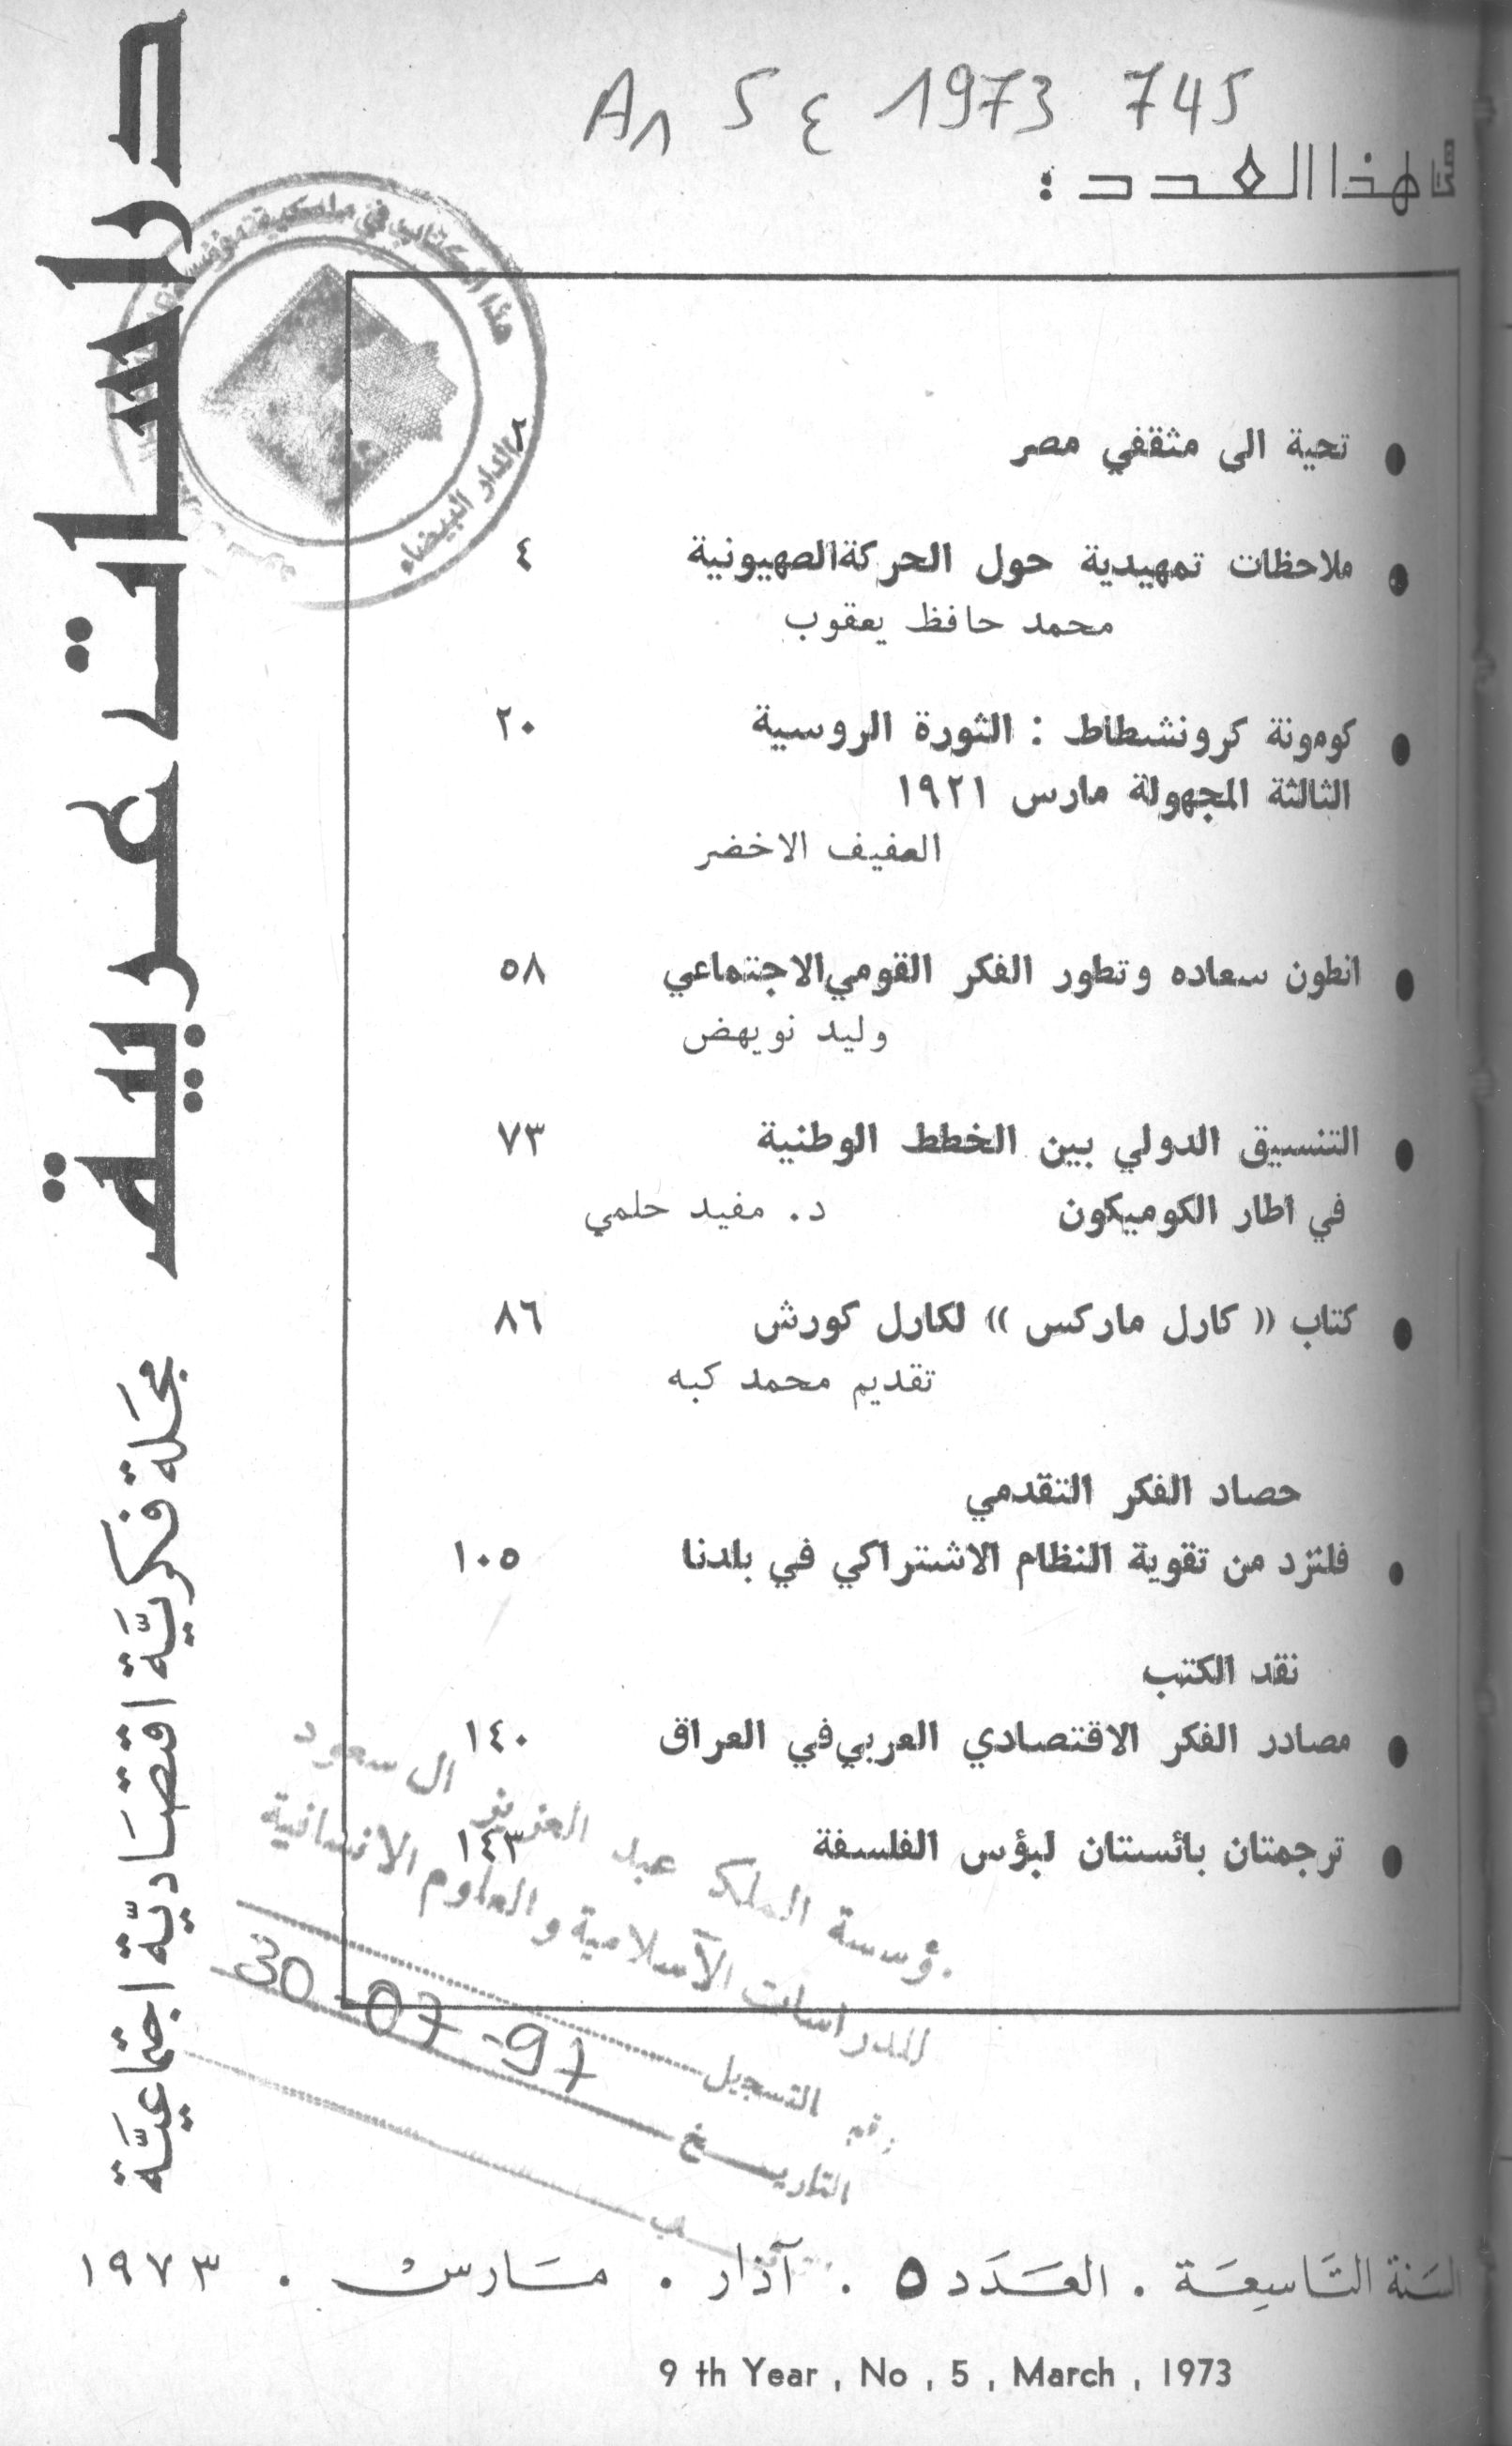 1973 745
هذا العدد :
تحية الى مثقفي مصر
ملاحظات تمهيدية حول الحركة الصهيونية ٤
محمد حافظ يعقوب
كومونة كرونشطاط : الثورة الروسية ٢٠
الثالثة المجهولة مارس ١٩٢١
العفيف الاخضر
انطون سعاده وتطور الفكر القومي الاجتماعي ٥٨
وليد نويهض
التنسيق الدولي بين الخطط الوطنية ٧٣
في اطار الكوميكون د. مفيد حلمي
كتاب (( كارل ماركس )) لكارل كورش ٨٦
تقديم محمد كبه
حصاد الفكر التقدمي
فلنزد من تقوية النظام الاشتراكي في بلدنا ١٠٥
نقد الكتب
مصادر الفكر الاقتصادي العربي في العراق ١٤٠
ترجمتان بائستان لبؤس الفلسفة ١٤٣
السَنة التَاسِعَة . العَدَد ٥ . آذار . مَارس . ١٩٧٣
9 th Year , No , 5 , March , 1973
دراسات عربية
مجَلة فكريَّة اقتصَاديّة اجتماعيَّة
هذا الكتاب في ملكية مؤسسة
الدار البيضاء
مؤسسة الملك عبد العزيز ال سعود
للدراسات الاسلامية والعلوم الانسانية
رقم التسجيل
التاريخ 30-07-97